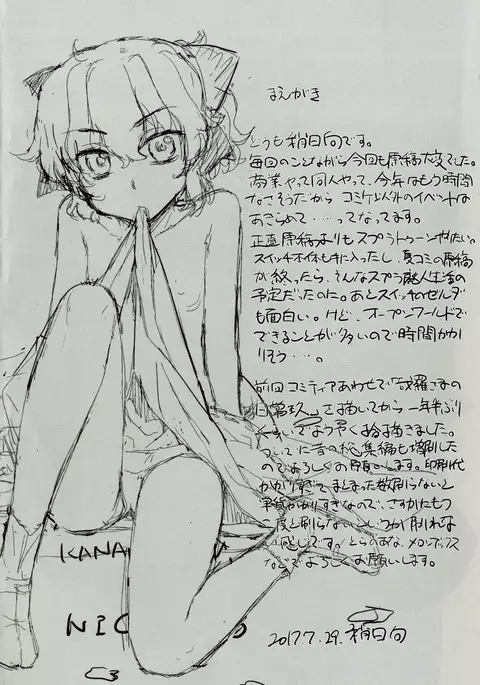 まえがき
どうも稍日向です。
毎回のことながら今回も原稿大変でした。
商業やって同人やって、今年はもう時間
なさそうだから コミケ以外のイベントは
あきらめて……ってなってます。
正直原稿よりもスプラトゥーンやりたい。
スイッチ本体も手に入ったし、夏コミの原稿
が終ったら、そんなスプラ廃人生活の
予定だったのに。あとスイッチのゼルダ
も面白い。けど、オープンワールドで
できることが多いので時間かか
りそう……。
前回コミティアあわせで「哉羅さまの
日常玖」を描いてから一年半ぶり
くらいでようやく拾描きました。
ついでに昔の総集編も増刷した
のでよろしくお願いします。印刷代
かかり過ぎて、まとまった数刷らないと
単価かかりすぎなので、さすがにもう
二度と刷らないというか刷れな
い感じです。とらのあな、メロンブックス
などでよろしくお願いします。
KANA
NIC
2017.7.29. 稍日向